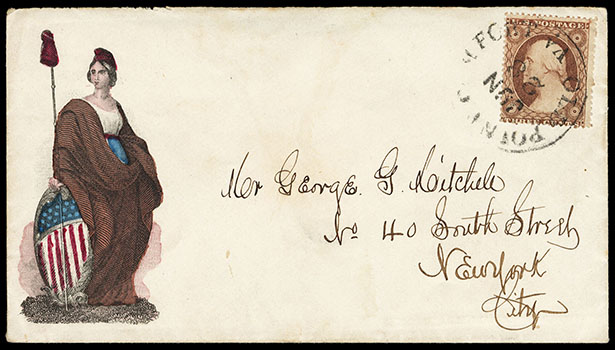 U.S. POSTAGE
OLD POINT COMFORT VA
Mr George. G. Mitchell
No 40 South Street
New York
City